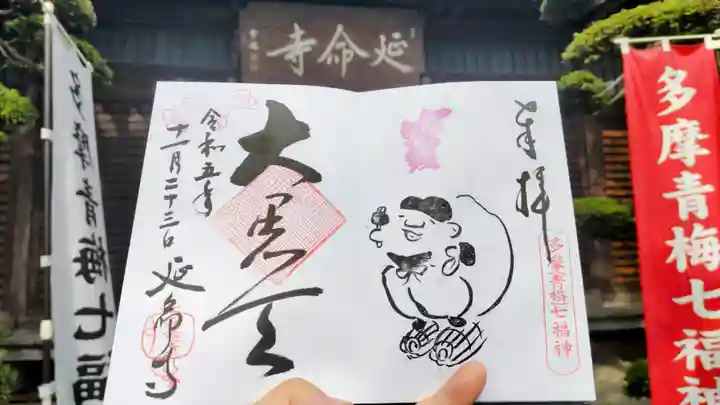 延命寺
多摩青梅七福
多摩青梅七福神
奉拝
多摩青梅七福神
大黒天
令和五年
十一月二十三日
延命寺